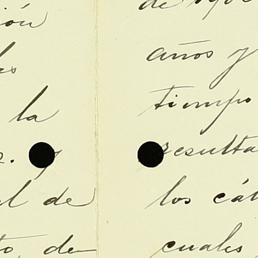 ión
la
al de
to, de
de
años y
tiempo
resulta
los cál
cuales